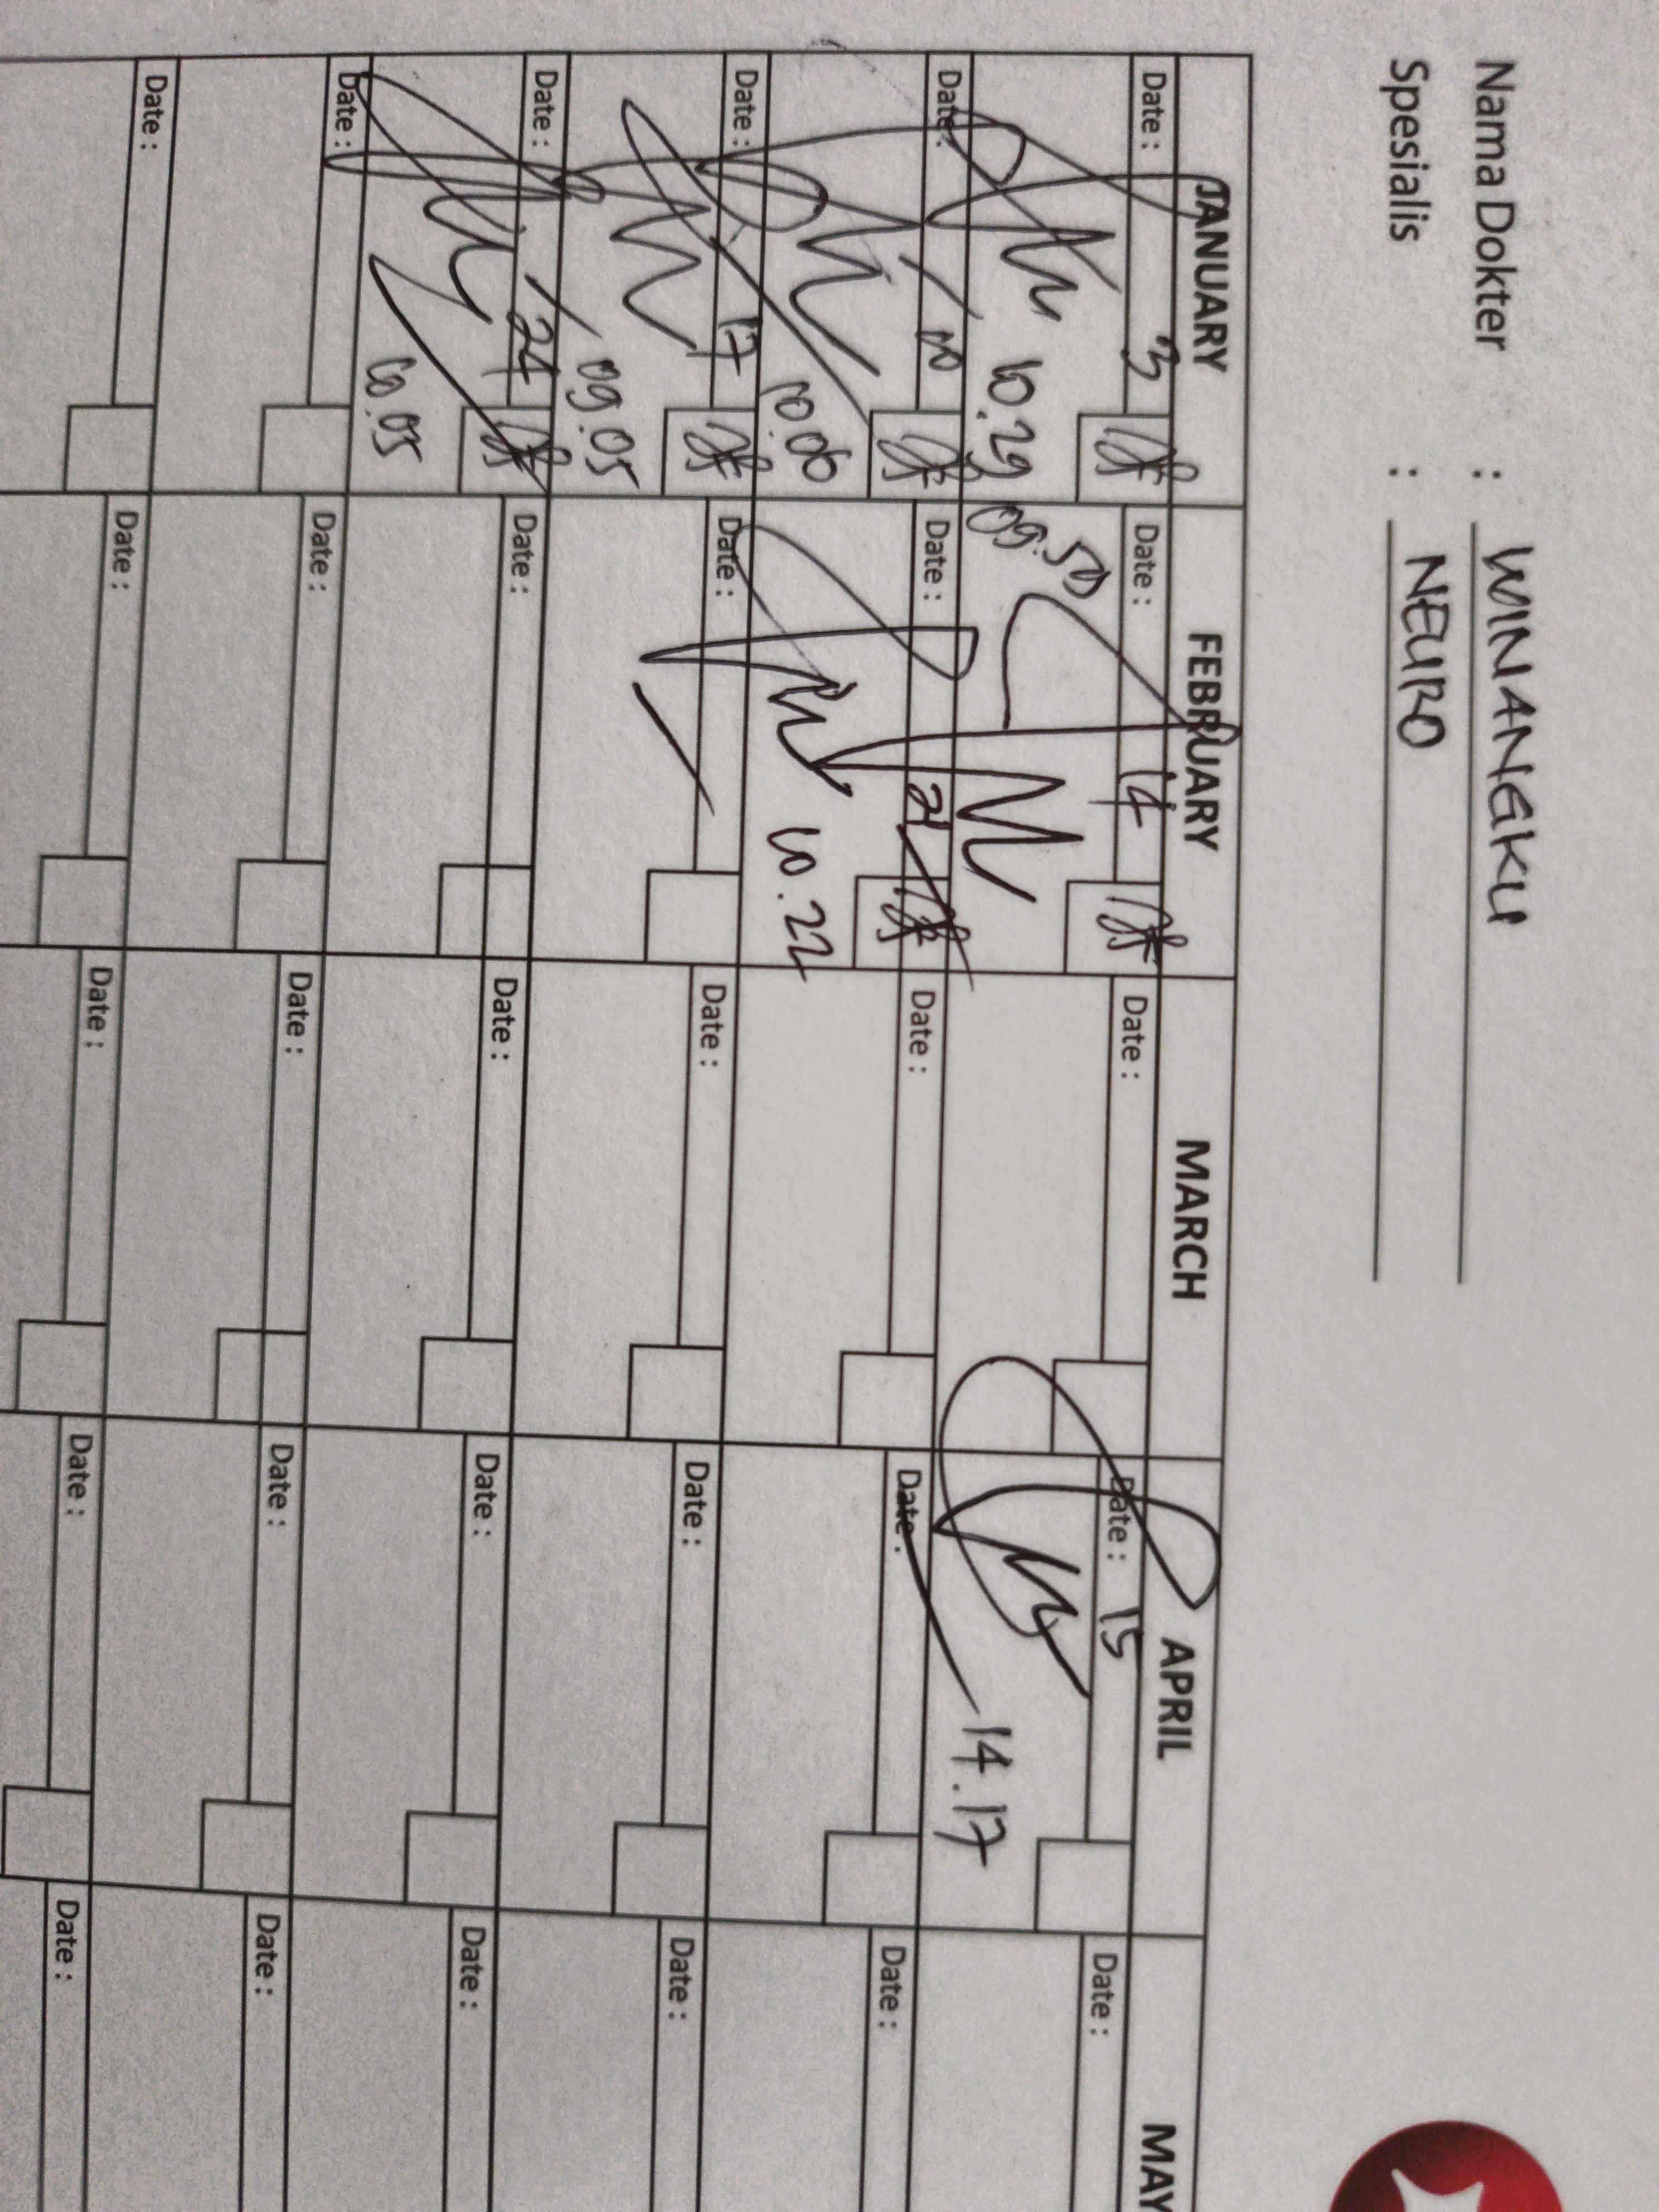 Nama Dokter : WINANGKU
Spesialis : NEURO
JANUARY FEBRUARY MARCH APRIL MAY
Date : 3 Date : 14 Date : Date : 15 Date :
10.29 09.50 14.17
Date : 10 Date : 21 Date : Date : Date :
10.06 10.22
Date : 17 Date : Date : Date : Date :
09.05
Date : 24 Date : Date : Date : Date :
10.05
Date : Date : Date : Date : Date :
Date : Date : Date : Date : Date :